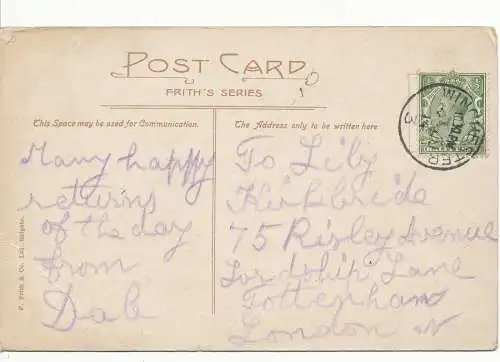 POST CARD
FRITH'S SERIES
This Space may be used for Communication.
The Address only to be written here
Many happy
returns
of the day
from
Dab
To Lily
Kirkbride
75 Risley Avenue
Lordship Lane
Tottenham
London N
F. Frith & Co. Ltd. Reigate.
WINCHESTER